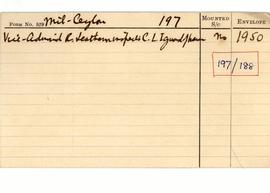 Form No. 579 Mil-Ceylon 197 Mounted S/c Envelope
Vice-Admiral R. Leatham inspects C. L. I guard No 1950
197/188